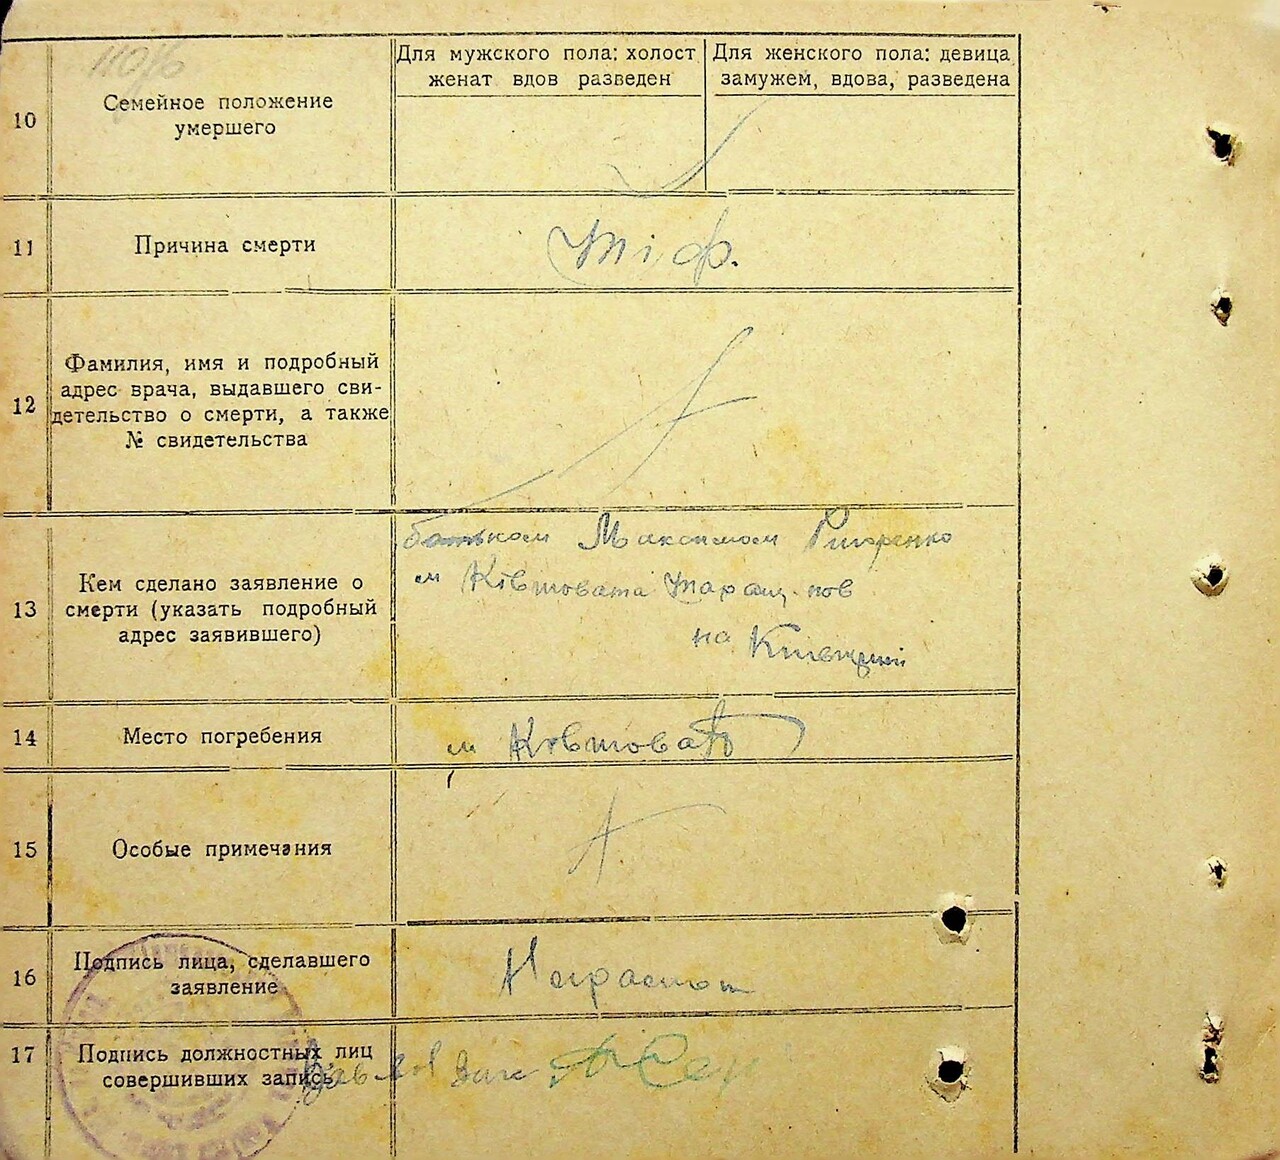 11016
Для мужского пола: холост
женат вдов разведен
Для женского пола: девица
замужем, вдова, разведена
10
Семейное положение
умершего
11
Причина смерти
Тіф.
12
Фамилия, имя и подробный
адрес врача, выдавшего сви-
детельство о смерти, а также
№ свидетельства
13
Кем сделано заявление о
смерти (указать подробный
адрес заявившего)
батьком Максимом
м Ківшовата Таращ. пов
на Київщині
14
Место погребения
м Ківшовата
15
Особые примечания
16
Подпись лица, сделавшего
заявление
17
Подпись должностных лиц
совершивших запись